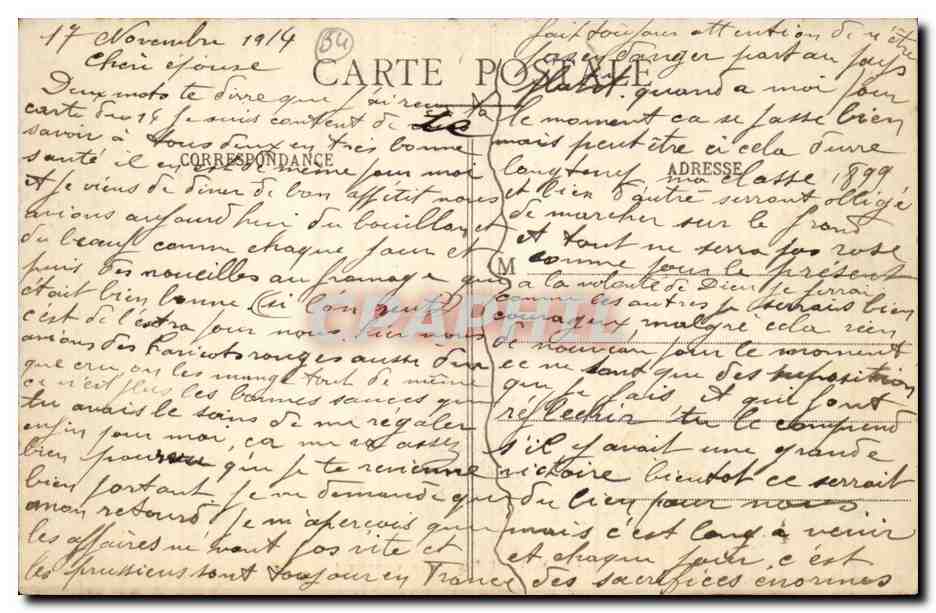 17 Novembre 1914
54
Cheri epouse
CARTE POSTALE
Deux mots te dirre que j'ai reçu
carte du 14 je suis content de
savoir à tous deux en très bonne
CORRESPONDANCE
santé il en est de même pour moi
et je viens de diner de bon appétit nous
avions aujourd'hui du bouillon et
du beauf comme chaque jour et
puis des noueilles au fromage que
c'était bien bonne (si l'on veut)
c'est de l'extra pour nous. hier nous
avions des haricots rouges aussi dur
que cru on les mange tout de même
ce n'est plus les bonnes sauces que
tu avais le soins de me régaler
enfin pour moi, ça me va assez
bien pourvu que je te revienne
bien portant je ne demande que
mon retourd je m'aperçois que
les affaires ne vont pas vite et
les prussiens sont toujour en France
fait toujour attention de n'être
pas danger part au pays
plard. quand a moi pour
le moment ca se passe bien
mais peut être ici cela durre
ADRESSE
longtemp ma classe 1899
et bien d'autre serront obligé
de marcher sur le frond
et tout ne serra pas rose
M
comme pour le présent
a la volonté de Dieu je ferrai
comme les autres je serrais bien
courageux, malgré cela rien
de nouveau pour le moment
ce ne sont que des suposition
que je fais, et qui font
réflechir tu le comprend
s'il y avait une grande
victoire bientot ce serrait
du bien pour nous
mais c'est long à venir
et chaque jour c'est
des sacrifices enormes
CPAPHIL